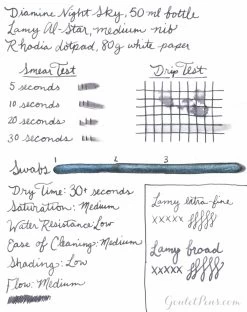 Diamine Night Sky, 50 ml bottle
Lamy Al-Star, medium nib
Rhodia dotpad, 80g white paper
Smear Test
5 seconds
10 seconds
20 seconds
30 seconds
Drip Test
Swabs
1 2 3
Dry Time: 30+ seconds
Saturation: Medium
Water Resistance: Low
Ease of Cleaning: Medium
Shading: Low
Flow: Medium
Lamy extra-fine
xxxxx fffff
Lamy broad
xxxxx fffff
GouletPens.com